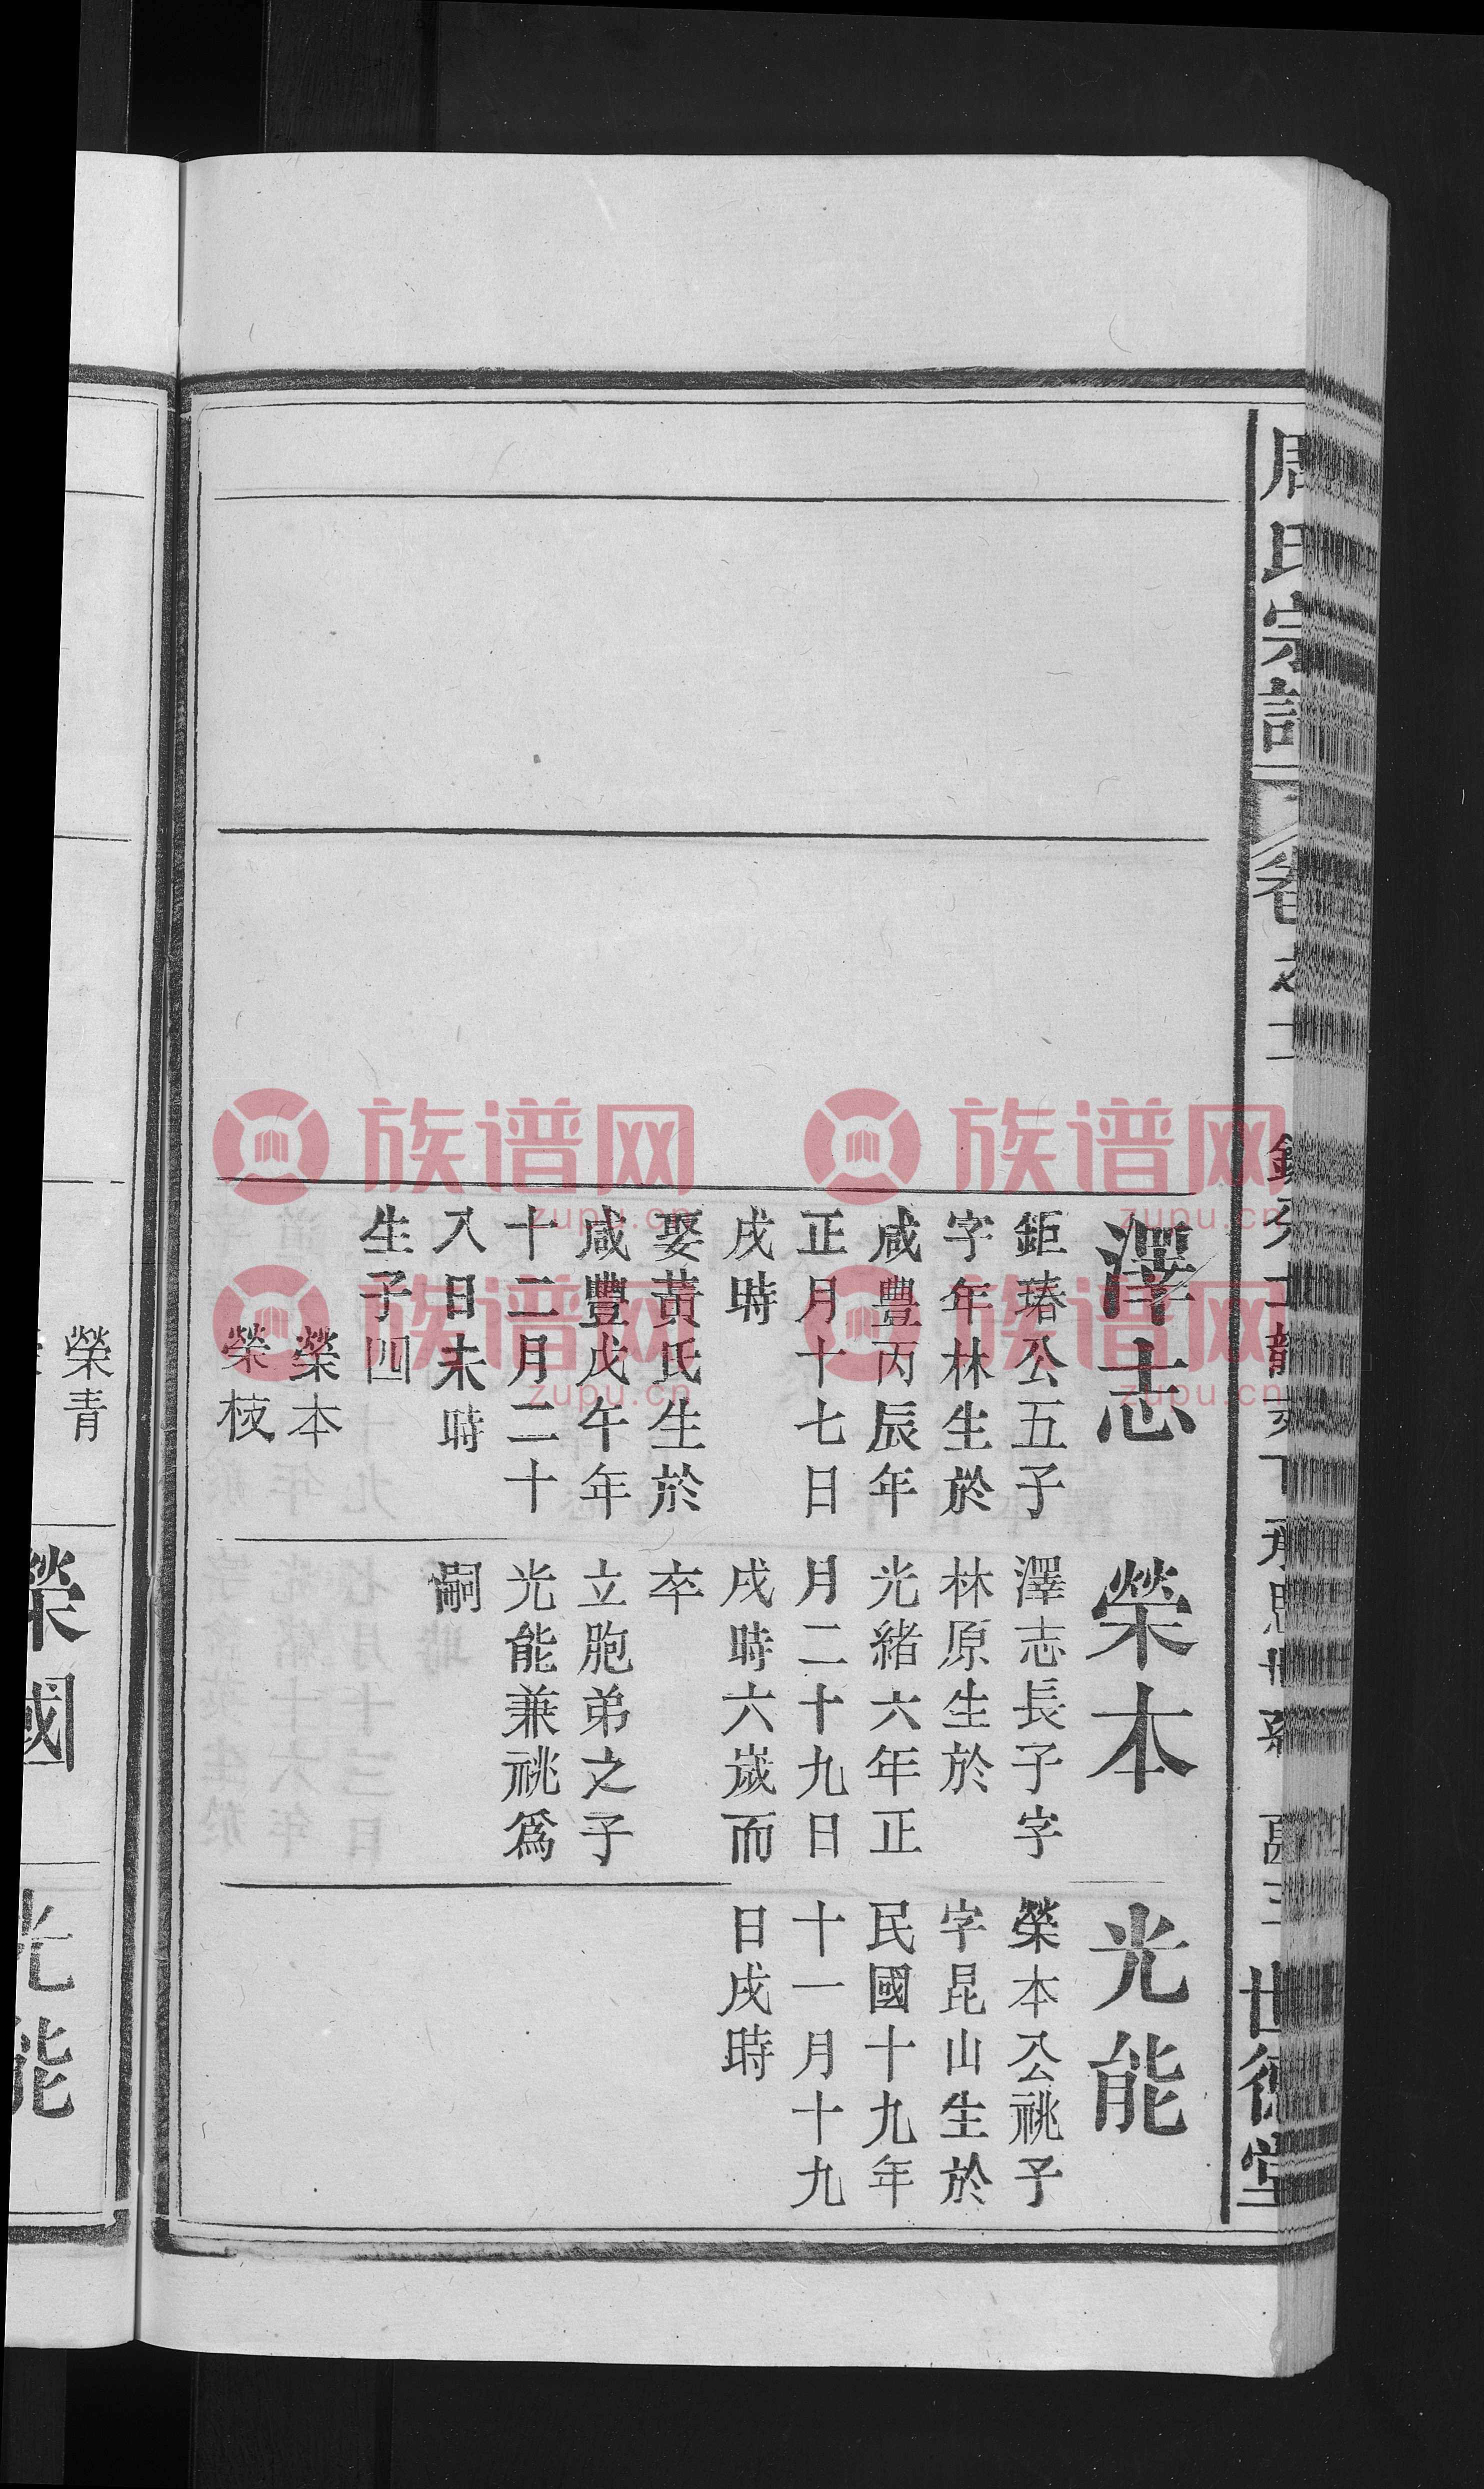 周氏宗譜
卷之十
世德堂
澤志
鉅瑃公五子
字年林生於
咸豐丙辰年
正月十七日
戌時
娶黃氏生於
咸豐戊午年
十二月二十
八日未時
生子四
榮本
榮枝
榮本
澤志長子字
林原生於
光緒六年正
月二十九日
戌時六歲而
卒
立胞弟之子
光能兼祧爲
嗣
光能
榮本公祧子
字昆山生於
民國十九年
十一月十九
日戌時
榮青
榮國
光能
族谱网
zupu.cn
族谱网
zupu.cn
族谱网
zupu.cn
族谱网
zupu.cn